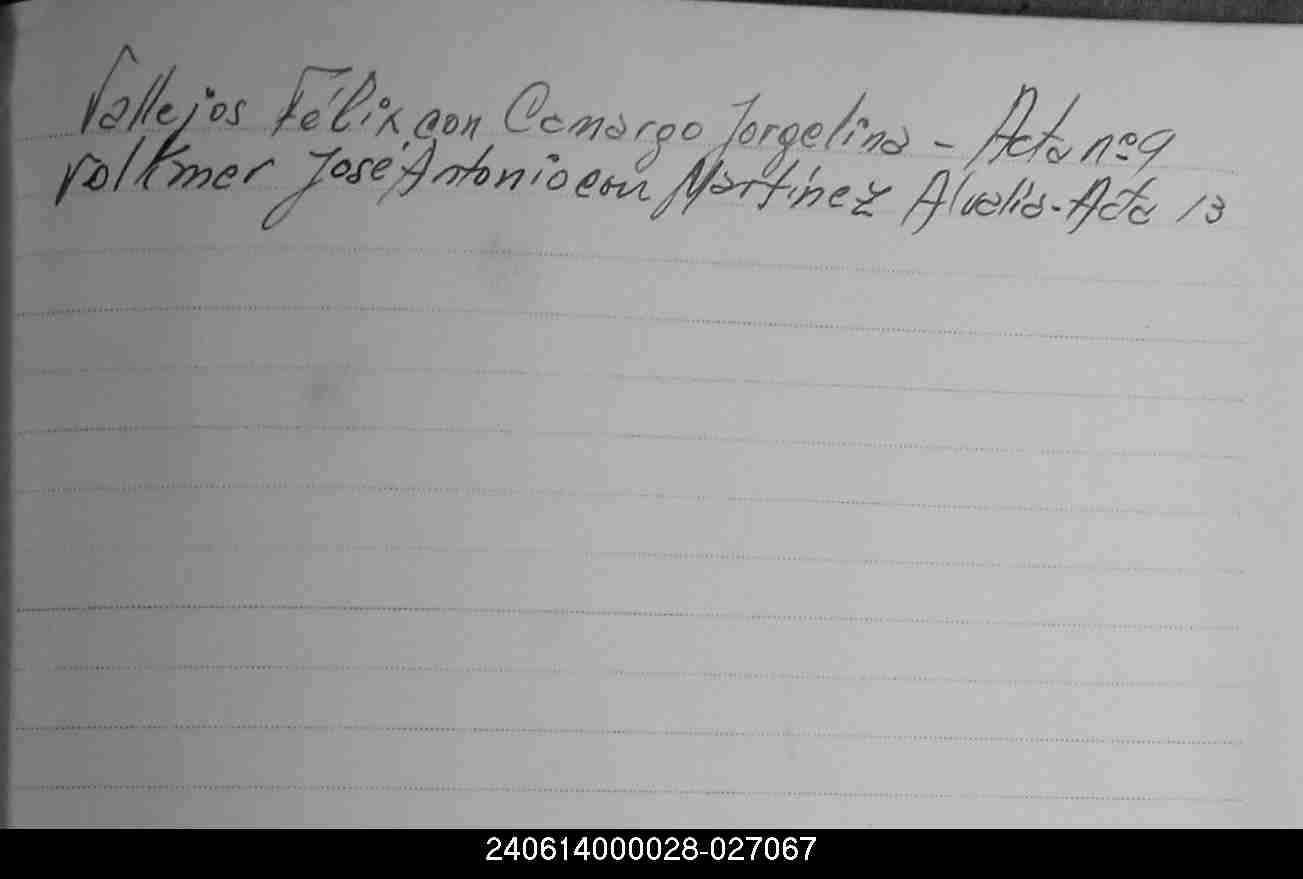 Vallejos Félix con Camargo Jorgelina - Acta nº 9
Volkmer José Antonio con Martínez Alvelia - Acta 13
240614000028-027067